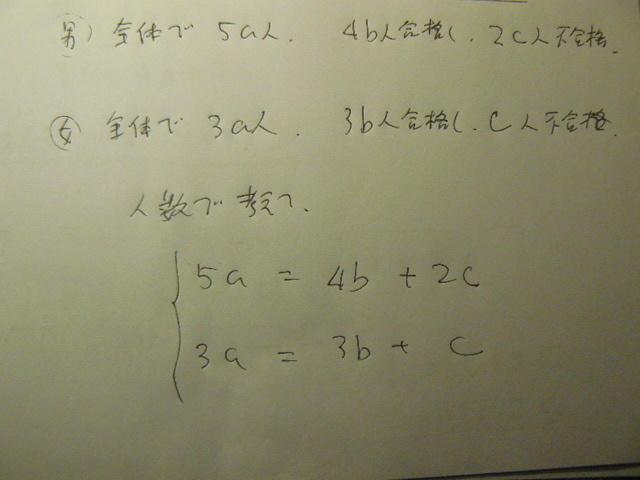 男) 全体で 5a人. 4b人合格し, 2c人不合格.
女 全体で 3a人. 3b人合格し, c人不合格.
人数で考えて.
5a = 4b + 2c
3a = 3b + c